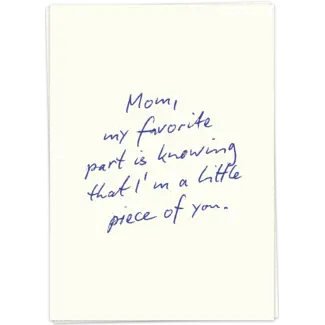 Mom,
my favorite
part is knowing
that I'm a little
piece of you.